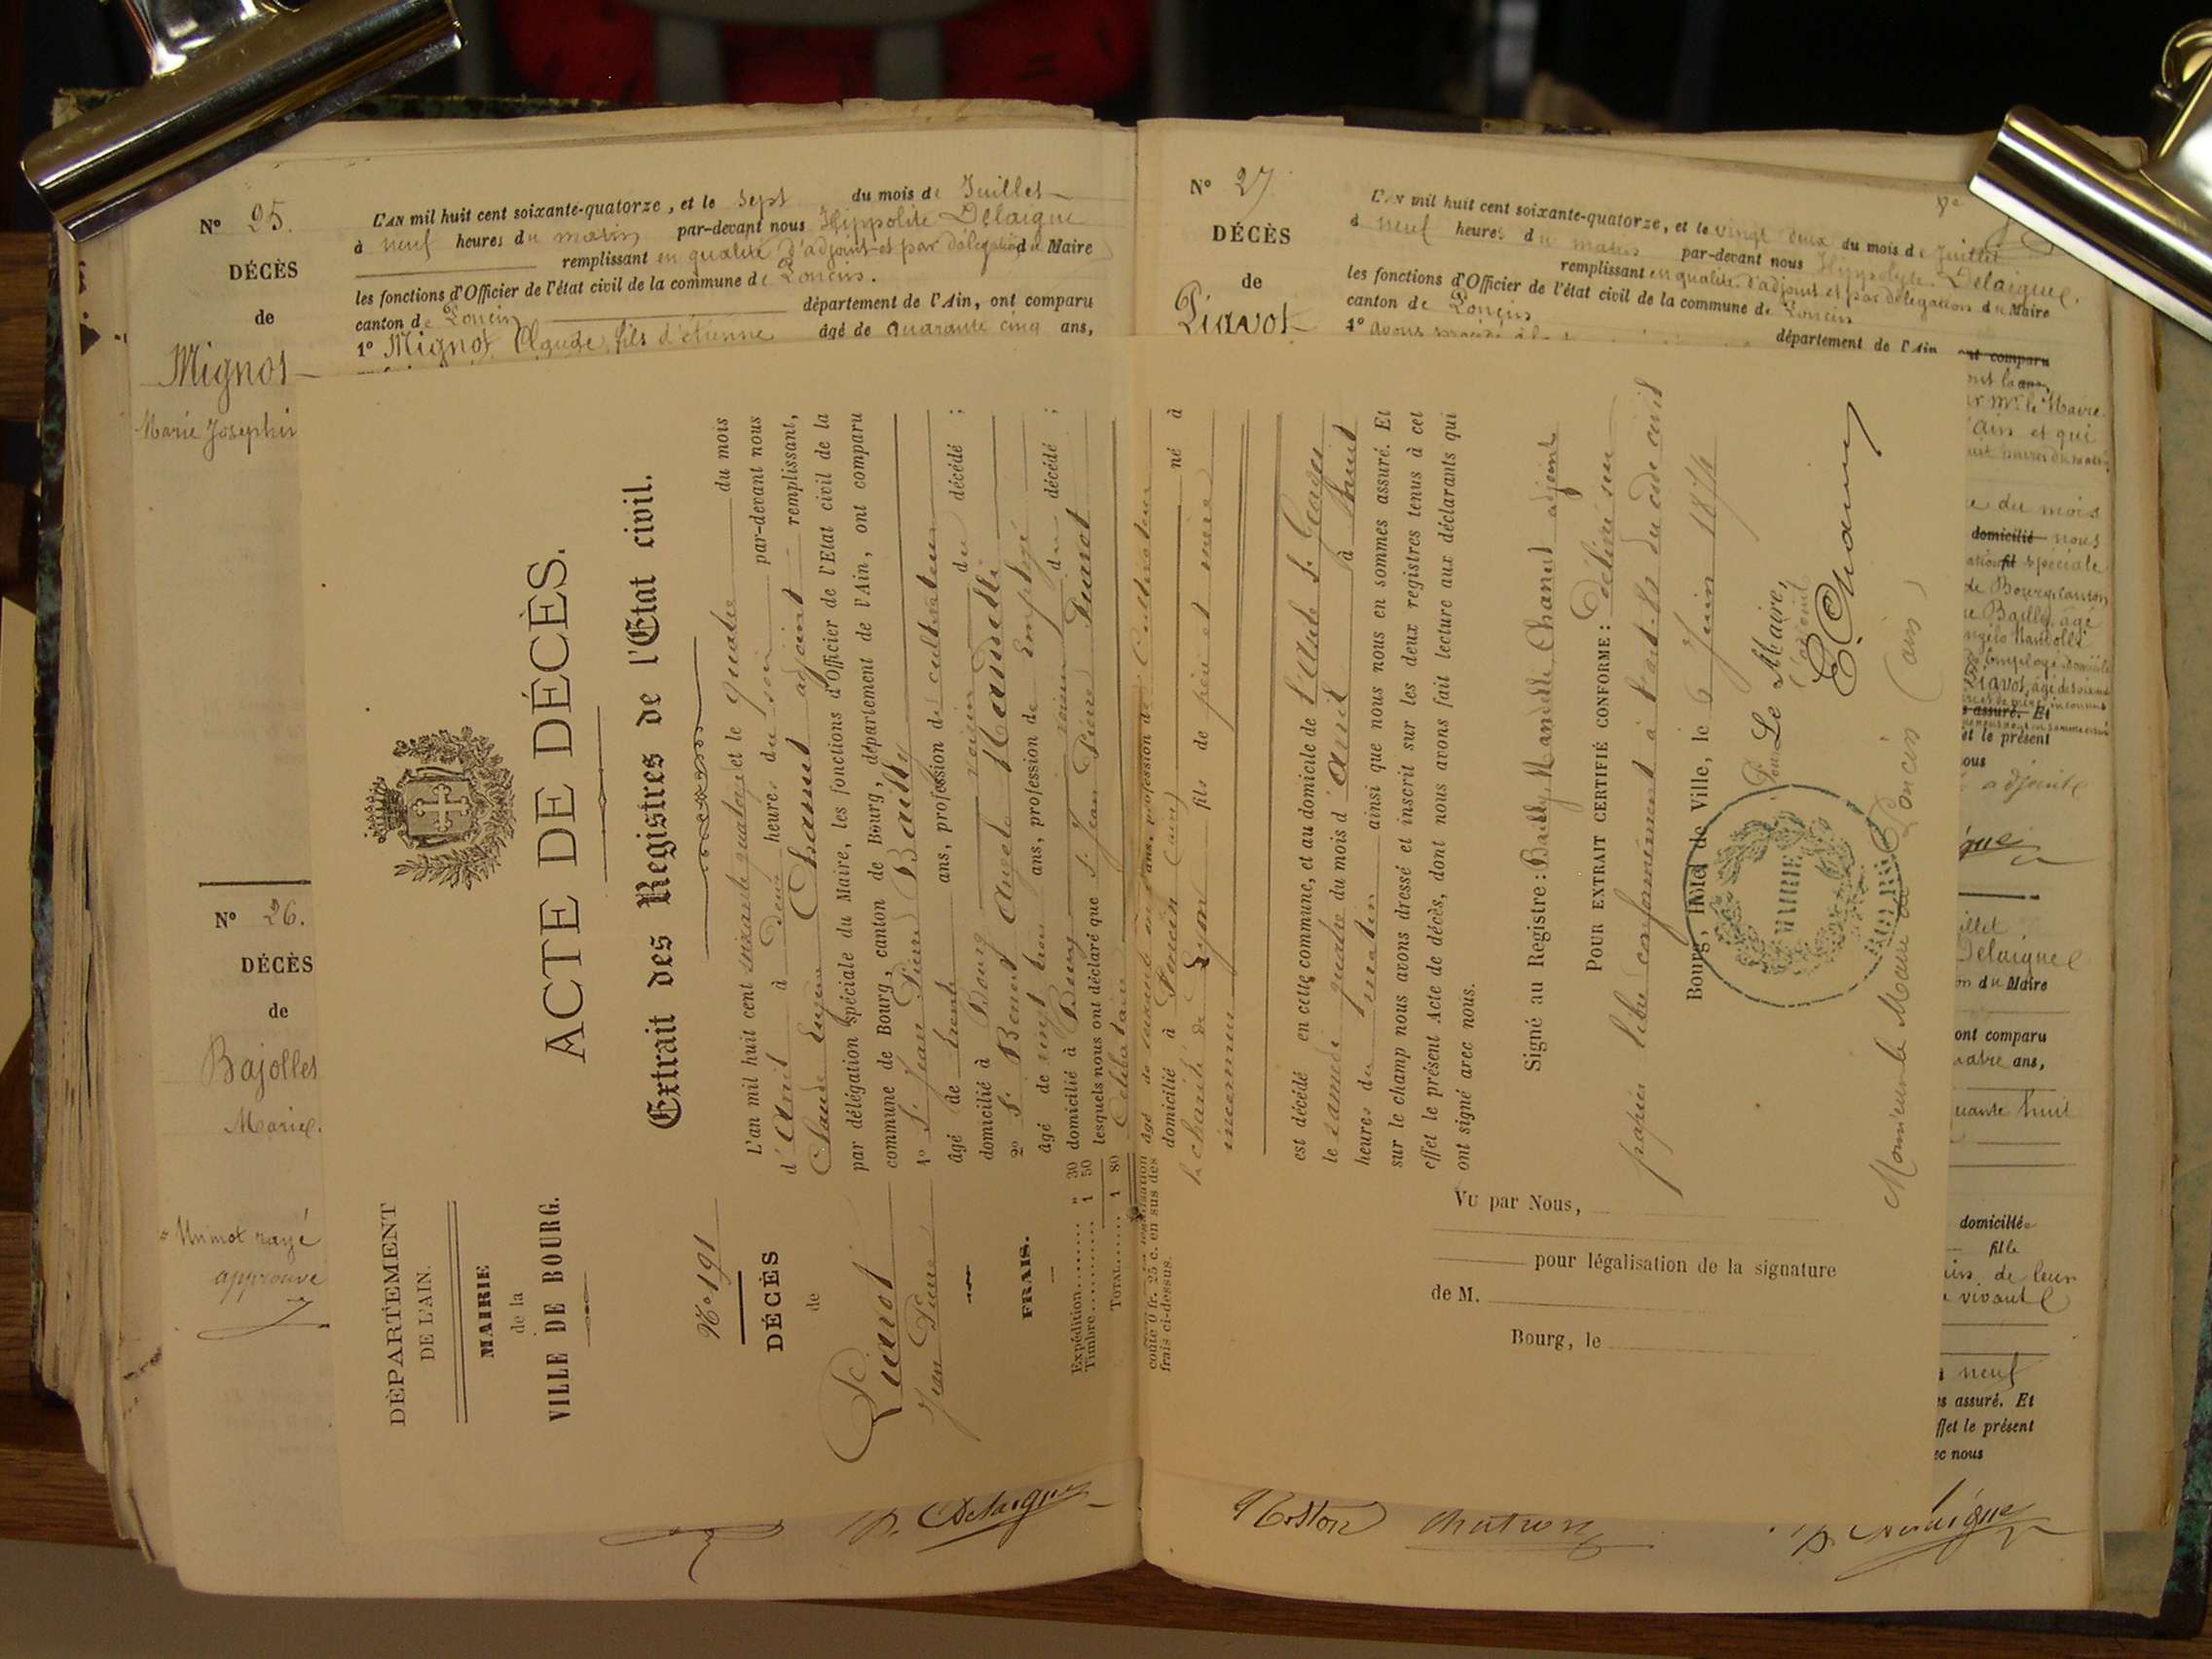 N° 25.
DÉCÈS
de
Mignot
Marie Josephi
L'AN mil huit cent soixante-quatorze, et le sept du mois de Juillet
à neuf heures du matin par-devant nous Hippolite Delaigue
remplissant en qualité d'adjoint et par délégation du Maire
les fonctions d'Officier de l'état civil de la commune de Poncin.
canton de Poncin département de l'Ain, ont comparu
1° Mignot Claude, fils d'étienne âgé de quarante cinq ans,
N° 26.
DÉCÈS
de
Bajolles
Marie.
Un mot rayé
approuvé
N° 27
DÉCÈS
de
Piavot
L'AN mil huit cent soixante-quatorze, et le vingt deux du mois de Juillet
à neuf heures du matin par-devant nous Hippolyte Delaigue.
remplissant en qualité d'adjoint et par délégation du Maire
les fonctions d'Officier de l'état civil de la commune de Poncin
canton de Poncin département de l'Ain ont comparu
1° avons procédé à la
DÉPARTEMENT
DE L'AIN.
MAIRIE
de la
VILLE DE BOURG.
N° 191
DÉCÈS
de
Piavot
Jean Pierre
FRAIS.
Expédition........ " 30
Timbre............ 1 50
TOTAL...... 1 80
coûte 0 fr. 25 c. en sus des
frais ci-dessus.
ACTE DE DÉCÈS.
Extrait des Registres de l'Etat civil.
L'an mil huit cent soixante quatorze et le quatre du mois
d'avril à deux heures du soir par-devant nous
Claude Eugène Chanut adjoint remplissant,
par délégation spéciale du Maire, les fonctions d'Officier de l'Etat civil de la
commune de Bourg, canton de Bourg, département de l'Ain, ont comparu
1° S. Jean Pierre Bailly
âgé de trente ans, profession de cultivateur
domicilié à Bourg voisin du décédé ;
2° S. Benoit Angelo Mandelli
âgé de vingt trois ans, profession de Employé
domicilié à Bourg voisin du décédé ;
lesquels nous ont déclaré que S. Jean Pierre Piavot
Célibataire
âgé de soixante ans, profession de Cultivateur
domicilié à Poncin (ain) né à
la charité de Lyon fils de père et mère
inconnus
est décédé en cette commune, et au domicile de l'Asile S. Georges
le samedi quatre du mois d'avril à huit
heures du matin ainsi que nous nous en sommes assuré. Et
sur le champ nous avons dressé et inscrit sur les deux registres tenus à cet
effet le présent Acte de décès, dont nous avons fait lecture aux déclarants qui
ont signé avec nous.
Signé au Registre : Bailly, Mandelli, Chanut adjoint
POUR EXTRAIT CERTIFIÉ CONFORME : délivré sur
papier libre conformément à l'art. 80 du code civil
Bourg, Hôtel de Ville, le 6 Juin 1874
Pour Le Maire,
l'adjoint
E. Chanut
MAIRIE
BOURG
Monsieur le Maire de Poncin (ain)
VU par Nous,
pour légalisation de la signature
de M.
Bourg, le
ont comparu
mr le Maire.
ain et qui
du mois
domicilié nous
spéciale
de Bourg, canton
Bailly, âgé
Angelo Mandelli
Employé Domicilié
Piavot, âgé de soixante
assuré. Et
et le présent
adjoint
Delaigue
du Maire
ont comparu
quatre ans,
huit
domicilié
fille
de leur
vivant
neuf
assuré. Et
effet le présent
nous
P. Delaigue
P. Delaigue